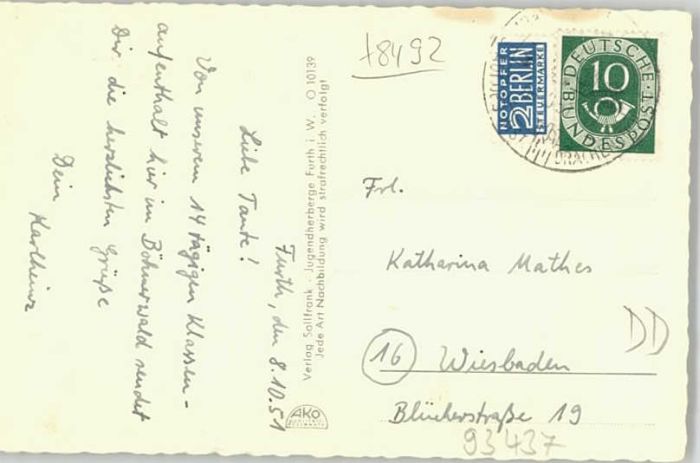 Furth, den 8.10.51
Liebe Tante!
Von unserem 14 tägigen Klassen-
aufenthalt hier im Böhmerwald sendet
Dir die herzlichsten Grüße
Dein
Karlheinz
Verlag Sallfrank · Jugendherberge Furth i. W. O 10139
Jede Art Nachbildung wird strafrechtlich verfolgt
AKO
+8492
NOTOPFER
2 BERLIN
STEUERMARKE
DEUTSCHE
BUNDESPOST
10
Frl.
Katharina Mathes
16 Wiesbaden
Blücherstraße 19
DD
93437